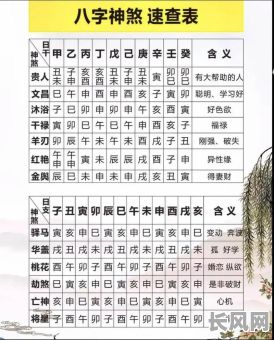 八字神煞 速查表
日干
神煞 甲 乙 丙 丁 戊 己 庚 辛 壬 癸 含义
贵人 有大帮助的人
文昌 巳 午 申 酉 申 酉 亥 子 寅 卯 聪明、学习好
沐浴 子 巳 卯 申 卯 申 午 亥 酉 寅 好色欲
干禄 寅 卯 巳 午 巳 午 申 酉 亥 子 福禄
羊刃 卯 辰 午 未 午 未 酉 戌 子 丑 刚强、破失
红艳 异性缘
金舆 辰 巳 未 申 未 申 戌 亥 丑 寅 得妻财
神煞 子 丑 寅 卯 辰 巳 午 未 申 酉 戌 亥 含义
驿马 寅 亥 申 巳 寅 亥 申 巳 寅 亥 申 巳 变动 奔波
华盖 辰 丑 戌 未 辰 丑 戌 未 辰 丑 戌 未 孤 好学
桃花 酉 午 卯 子 酉 午 卯 子 酉 午 卯 子 婚恋 纵欲
劫煞 巳 寅 亥 申 巳 寅 亥 申 巳 寅 亥 申 是非破财
亡神 亥 申 巳 寅 亥 申 巳 寅 亥 申 巳 寅 心机
将星 子 酉 午 卯 子 酉 午 卯 子 酉 午 卯
长风网